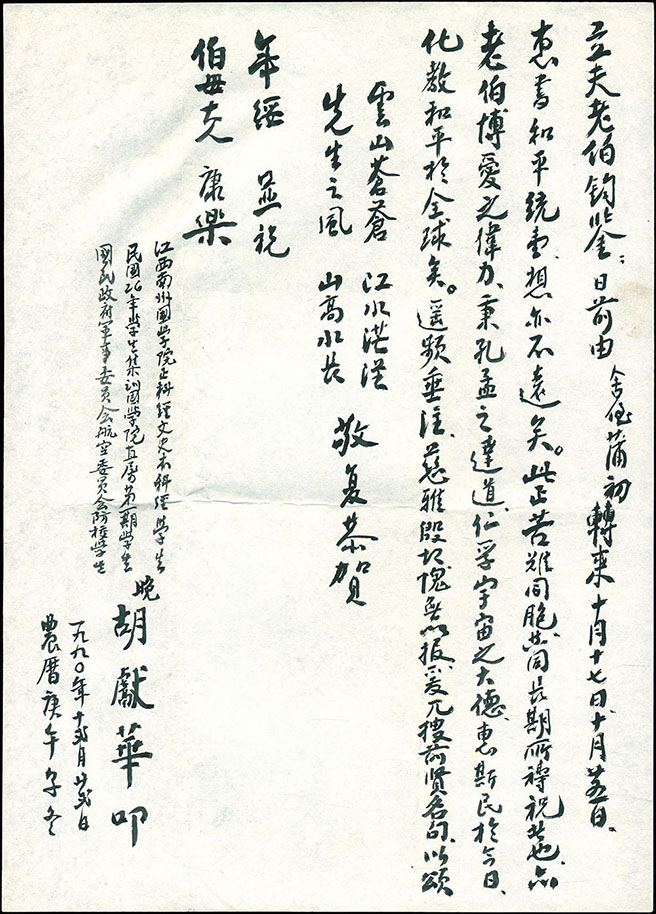 立夫老伯鈞鉴：日前由 舍侄蒲初轉來十月十七日、十月廿五日、
惠書和平統壹、想亦不遠矣。此正苦难同胞、共同長期所禱祝者也、亦
老伯博爱之偉力、秉孔孟之達道、仁孚宇宙之大德、惠斯民於今日、
化教和平於全球矣。遥頻垂注、慈雅殷切、愧無以报、爰兀搜前賢名句、以頌
雲山蒼蒼 江水茫茫
先生之風 山高水长 敬复恭賀
年绥 並祝
伯母大人 康樂
江西南州國学院正科經文史本科經学生
民國26年学生集训國学院直属第一期学生
國民政府军事委员会航空委员会防校学生
晚 胡獻華叩
一九九〇年十弍月廿弍日
農曆庚午冬